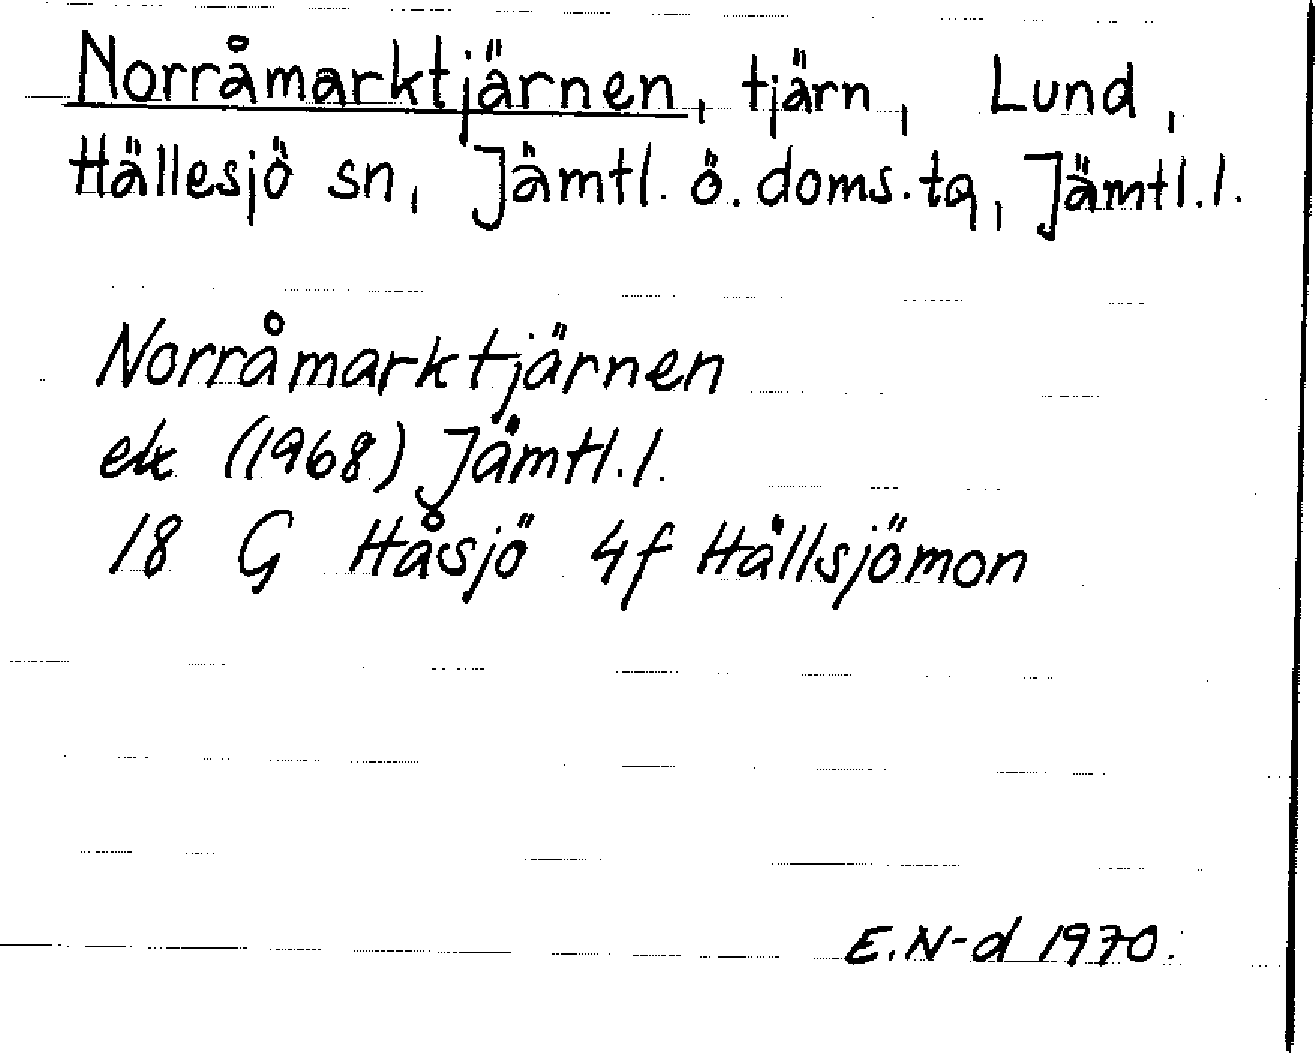 Norråmarktjärnen, tjärn, Lund,
Hällesjö sn, Jämtl. ö. doms.tg, Jämtl.l.
Norråmarktjärnen
ek (1968) Jämtl.l.
18 G Håsjö 4f Hällsjömon
E.N-d 1970.